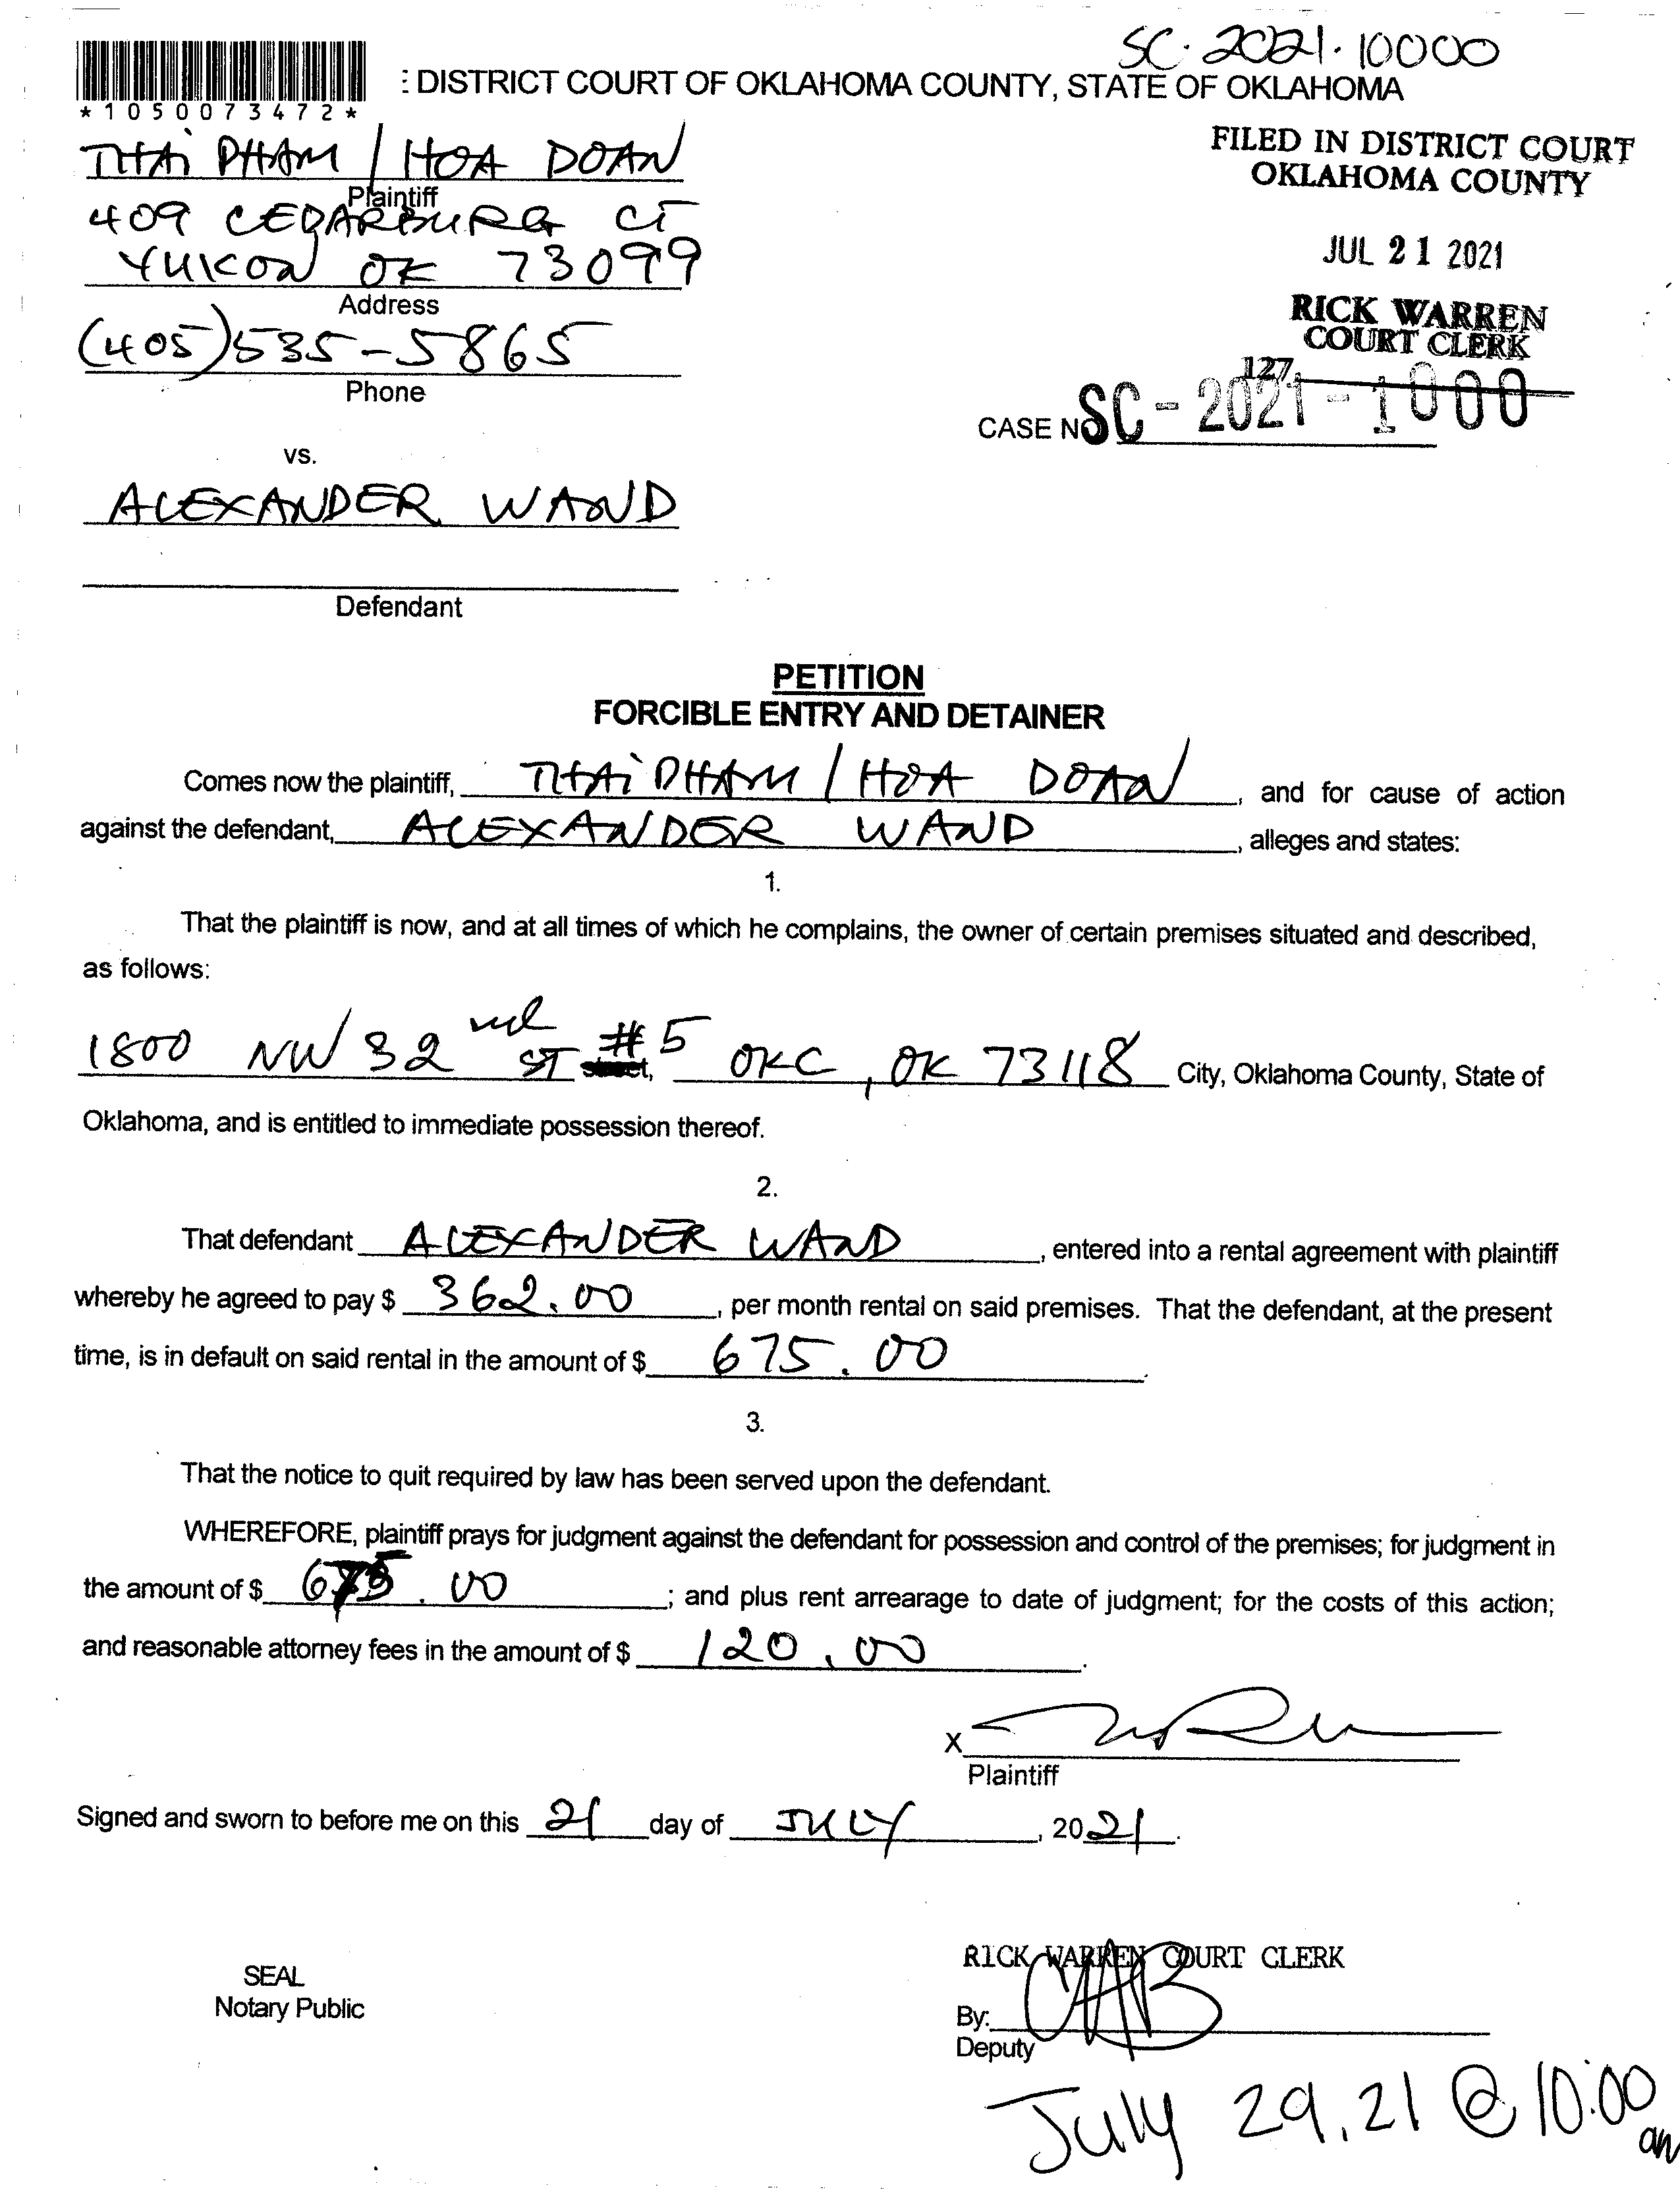 SC-2021-10000
*1050073472*
: DISTRICT COURT OF OKLAHOMA COUNTY, STATE OF OKLAHOMA
THAI PHAM / HOA DOAN
Plaintiff
409 CEDARBURG CT
YUKON OK 73099
Address
(405) 535-5865
Phone
FILED IN DISTRICT COURT
OKLAHOMA COUNTY
JUL 21 2021
RICK WARREN
COURT CLERK
127
CASE NO SC-2021-1000
vs.
ALEXANDER WAND
Defendant
PETITION
FORCIBLE ENTRY AND DETAINER
Comes now the plaintiff, THAI PHAM / HOA DOAN, and for cause of action
against the defendant, ALEXANDER WAND, alleges and states:
1.
That the plaintiff is now, and at all times of which he complains, the owner of certain premises situated and described,
as follows:
1800 NW 32nd ST street, #5 OKC, OK 73118 City, Oklahoma County, State of
Oklahoma, and is entitled to immediate possession thereof.
2.
That defendant ALEXANDER WAND, entered into a rental agreement with plaintiff
whereby he agreed to pay $ 362.00, per month rental on said premises. That the defendant, at the present
time, is in default on said rental in the amount of $ 675.00.
3.
That the notice to quit required by law has been served upon the defendant.
WHEREFORE, plaintiff prays for judgment against the defendant for possession and control of the premises; for judgment in
the amount of $ 675.00; and plus rent arrearage to date of judgment; for the costs of this action;
and reasonable attorney fees in the amount of $ 120.00.
X
Plaintiff
Signed and sworn to before me on this 21 day of JULY, 2021.
SEAL
Notary Public
RICK WARREN COURT CLERK
By:
Deputy
July 29, 21 @ 10:00
am